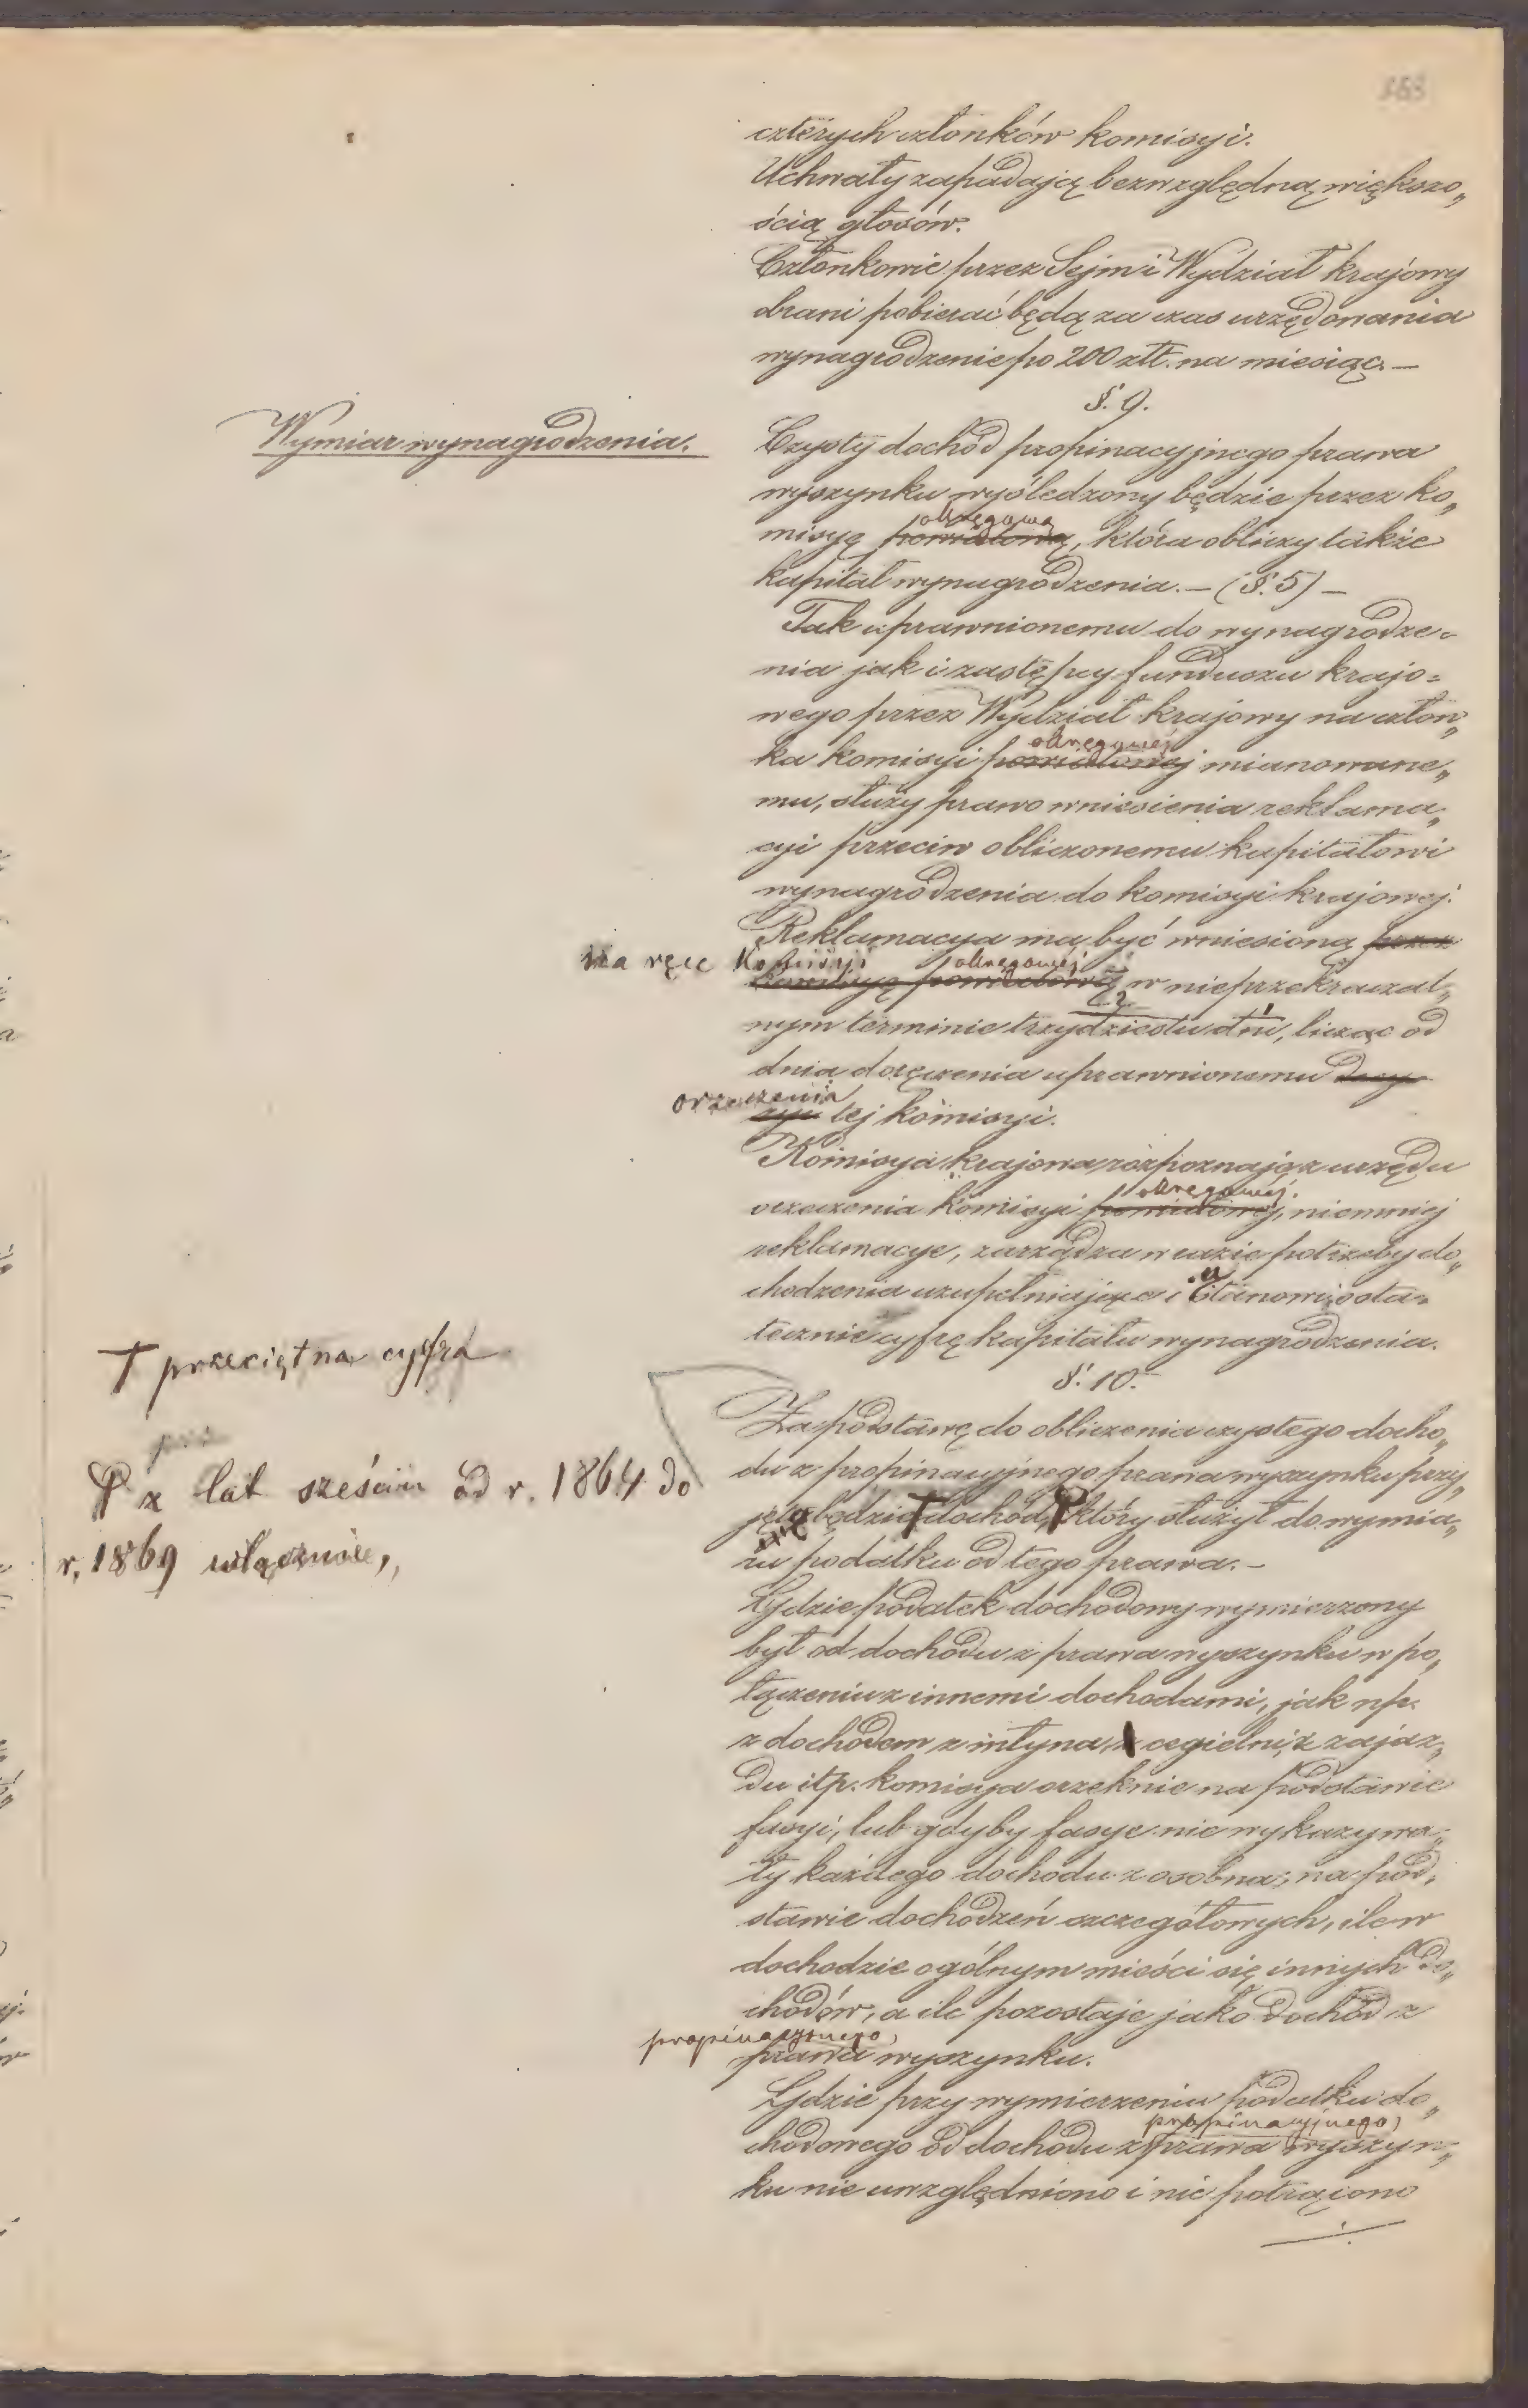 czterych członków komisyi.
Uchwały zapadają bezwzględną większo„
ścią głosów.
Członkowie przez Sejm i Wydział krajowy
obrani pobierać będą za czas urzędowania
wynagrodzenie po 200 złt. na miesiąc. —
§. 9.
Wymiar wynagrodzenia.
Czysty dochód propinacyjnego prawa
wyszynku wyśledzony będzie przez ko„
okręgową
misyę powiatową, która obliczy także
kapitał wynagrodzenia. — (§. 5) —
Tak uprawnionemu do wynagrodze=
nia jak i zastępcy funduszu krajo=
wego przez Wydział krajowy na człon„
okręgowej
ka komisyi powiatowej mianowane„
mu, służy prawo wniesienia reklama„
cyi przeciw obliczonemu kapitałowi
wynagrodzenia do komisyi krajowej.
Reklamacya ma być wniesioną przez
na ręce Komisyi okręgowej
komisyę powiatową w nieprzekraczal„
nym terminie trzydziestu dni, licząc od
dnia doręczenia uprawnionemu decy
orzeczenia
cyi tej komisyi.
Komisya krajowa rozpoznając z urzędu
okręgowej.
orzeczenia komisyi powiatowej, niemniej
reklamacye, zarządza w razie potrzeby do„
chodzenia uzupełniające i stanowi osta=
tecznie cyfrę kapitału wynagrodzenia.
§. 10.
T przeciętna cyfra
Za podstawę do obliczenia czystego docho„
du z propinacyjnego prawa wyszynku przy„
z lat sześciu od r. 1864 do
r. 1869 włącznie,
jęto będzie T dochód, który służył do wymia„
ru podatku od tego prawa. —
Gdzie podatek dochodowy wymierzony
był od dochodu z prawa wyszynku w po„
łączeniu z innemi dochodami, jak np.
z dochodem z młyna, z cegielni, z zajaz„
du itp. komisya orzeknie na podstawie
fasyi, lub gdyby fasye nie wykazywa„
ły każdego dochodu z osobna, na pod„
stawie dochodzeń szczegółowych, ile w
dochodzie ogólnym mieści się innych do„
chodów, a ile pozostaje jako dochód z
propinacyjnego,
prawa wyszynku.
Gdzie przy wymierzeniu podatku do„
propinacyjnego,
chodowego od dochodu z prawa wyszyn„
ku nie uwzględniono i nie potrącono